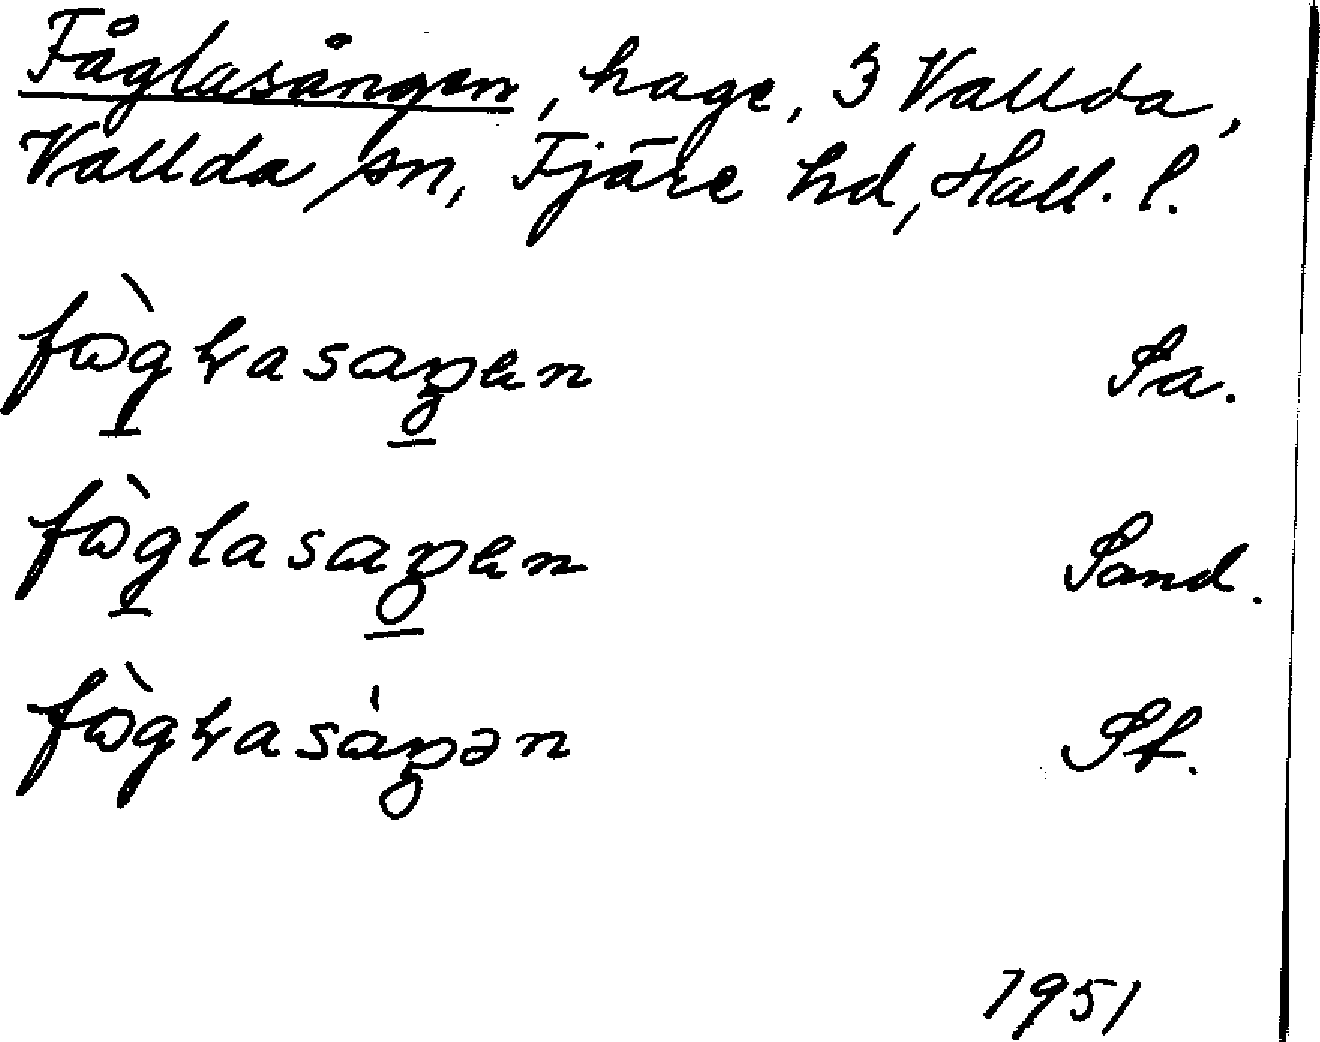 Fåglasången, hage, 3 Vallda,
Vallda sn, Fjäre hd, Hall. l.
Sa.
Sand.
St.
1951